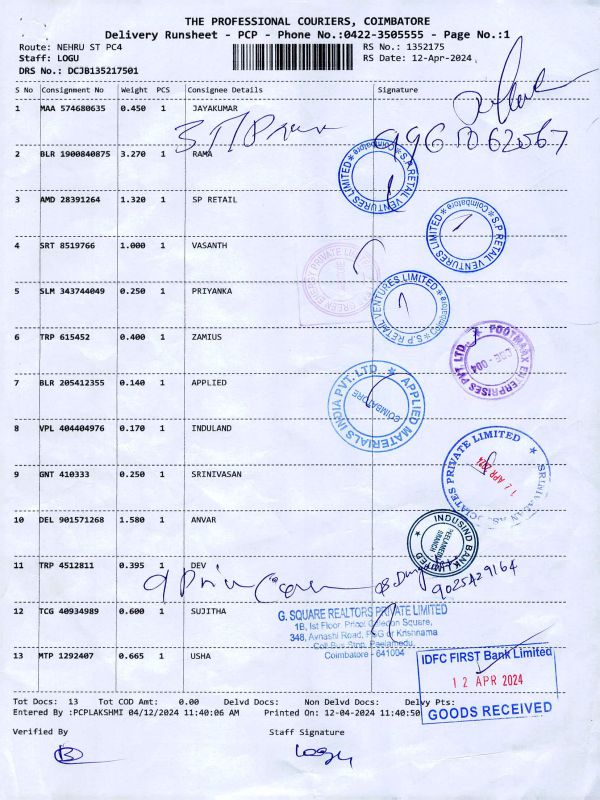 THE PROFESSIONAL COURIERS, COIMBATORE
Delivery Runsheet - PCP - Phone No.:0422-3505555 - Page No.:1
Route: NEHRU ST PC4
RS No.: 1352175
Staff: LOGU
RS Date: 12-Apr-2024
DRS No.: DCJB135217501
S No Consignment No Weight PCS Consignee Details Signature
1 MAA 574680635 0.450 1 JAYAKUMAR
9961062067
2 BLR 1900840875 3.270 1 RAMA
S.P.RETAIL VENTURES LIMITED * Coimbatore *
3 AMD 28391264 1.320 1 SP RETAIL
S.P.RETAIL VENTURES LIMITED * Coimbatore *
4 SRT 8519766 1.000 1 VASANTH
5 SLM 343744049 0.250 1 PRIYANKA
S.P.RETAIL VENTURES LIMITED * Coimbatore *
6 TRP 615452 0.400 1 ZAMIUS
FOOTMARX ENTERPRISES PVT LTD *
CBE - 004
7 BLR 205412355 0.140 1 APPLIED
APPLIED MATERIALS INDIA PVT. LTD. *
COIMBATORE
8 VPL 404404976 0.170 1 INDULAND
9 GNT 410333 0.250 1 SRINIVASAN
SRINIVASAN ASSOCIATES PRIVATE LIMITED *
12 APR 2024
10 DEL 901571268 1.580 1 ANVAR
INDUSIND BANK LIMITED *
PEELAMEDU
BRANCH
11 TRP 4512811 0.395 1 DEV
9025429164
12 TCG 40934989 0.600 1 SUJITHA
G. SQUARE REALTORS PRIVATE LIMITED
1B, Ist Floor, Square,
348, Avnashi Road, Krishnama
Stop, Peelamedu,
Coimbatore - 641004
13 MTP 1292407 0.665 1 USHA
IDFC FIRST Bank Limited
12 APR 2024
GOODS RECEIVED
Tot Docs: 13 Tot COD Amt: 0.00 Delvd Docs: Non Delvd Docs: Delvy Pts:
Entered By :PCPLAKSHMI 04/12/2024 11:40:06 AM Printed On: 12-04-2024 11:40:50
Verified By
Staff Signature
Logu